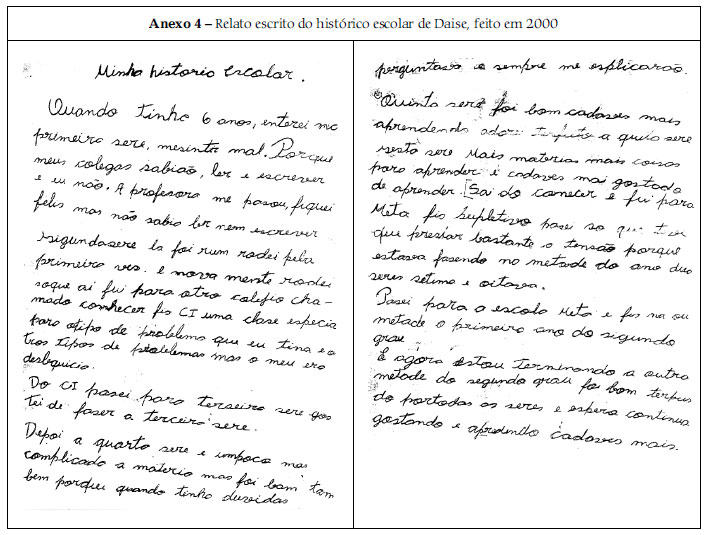 Anexo 4 – Relato escrito do histórico escolar de Daise, feito em 2000
Minha historio escolar.
Quando tinha 6 anos, enterei no
primeiro sere, mesinta mal. Porque
meus colegas sabião, ler e escrever
e eu não. A profesora me pasou, fiquei
felis mas não sabio ler nem escrever
sigundasere la foi rum rodei pela
primeiro ves. e nova mente rodei
soque ai fui para otro colefio cha-
mado conhecer fis CI uma clase especia
paro otipo de problemo que eu tina e o
tros tipos de problemas mas o meu ero
deslequicio.
Do CI pasei paro terseiro sere gos
tei de faser a terceiro sere.
Depoi a quarto sere e umpoco mas
complicado a materio mas foi bom tam
bem porqueu quando tinho duvidas
perguntava e sempre me esplicarão.
Quinta sere foi bom cadaves mais
aprendendo adorei a sere
sesta sere Mais materias mais coisas
para aprender é cadaves mai gostado
de aprender. Sai do conecer e fui para
Meta fis Supletivo pasei so que
que prestar bastante o tensão porque
estava fasendo no metade do ano duo
seres setimo e oitava.
Pasei para o escola Meta e fis na ou
metade o primeiro ano do sigundo
grau
E agora estou terminando a outra
metade do segundo grau foi bom ter
do por todas as seres e espero continua
gostando e aprendendo cadaves mais.